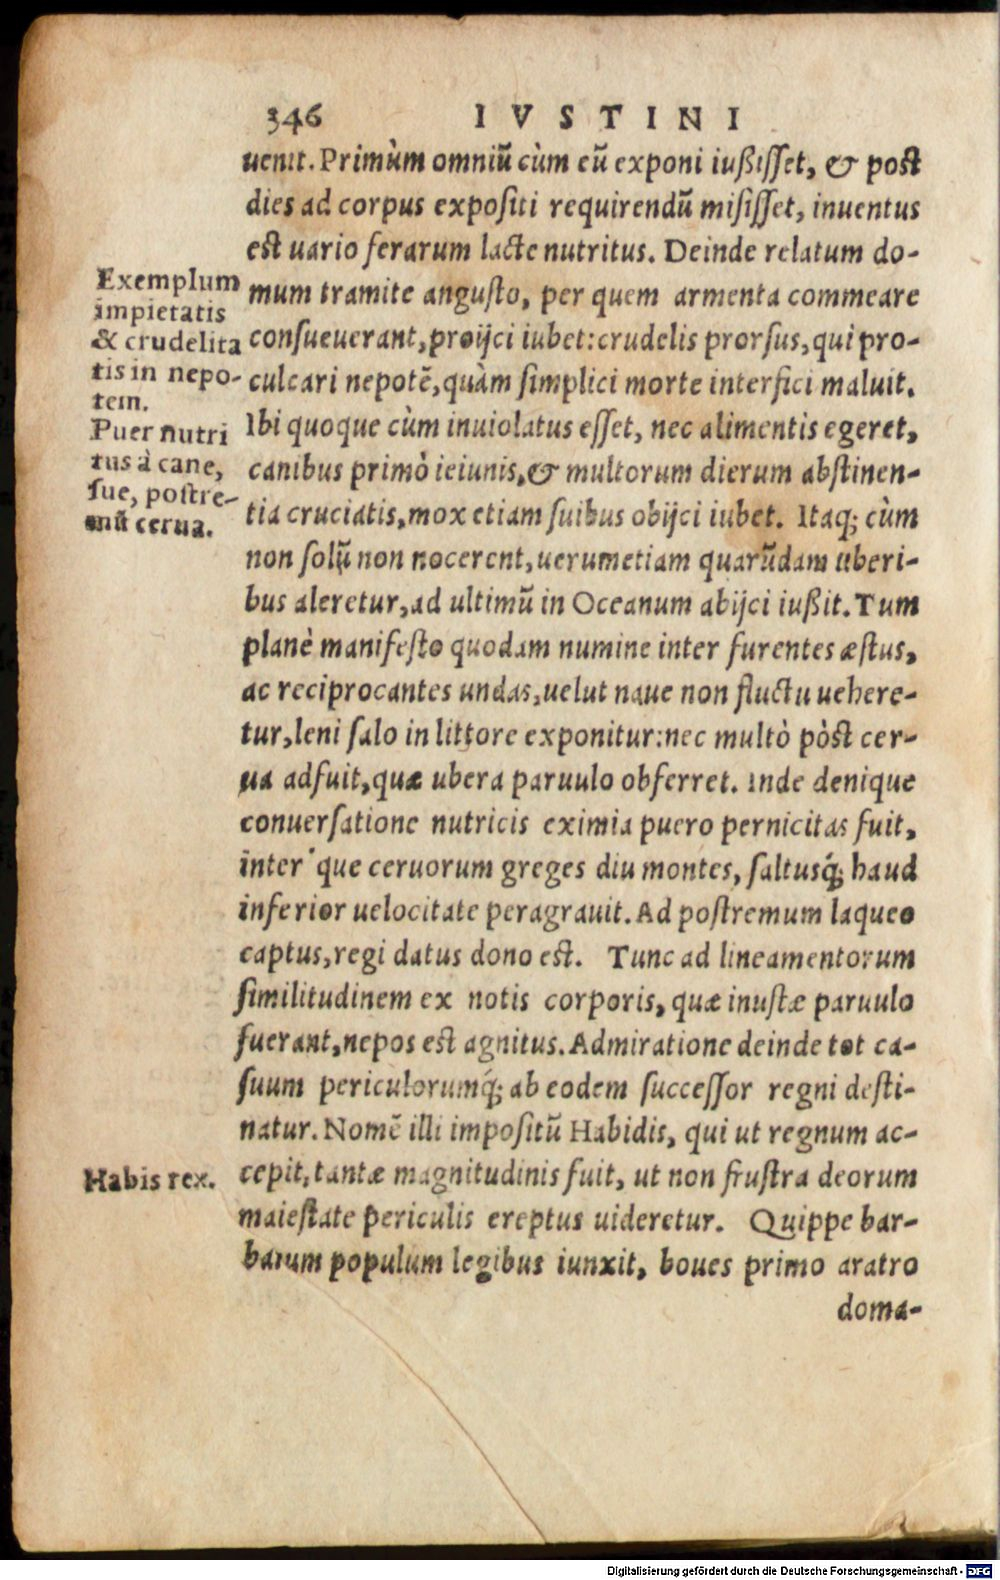 346 IVSTINI
uenit. Primùm omniũ cùm eũ exponi iußisset, & post
dies ad corpus expositi requirendũ misisset, inuentus
est uario ferarum lacte nutritus. Deinde relatum do-
mum tramite angusto, per quem armenta commeare
consueuerant, proijci iubet: crudelis prorsus, qui pro-
culcari nepotẽ, quàm simplici morte interfici maluit.
Ibi quoque cùm inuiolatus esset, nec alimentis egeret,
canibus primò ieiunis, & multorum dierum abstinen-
tia cruciatis, mox etiam suibus obijci iubet. Itaq; cùm
non solũ non nocerent, uerumetiam quarũdam uberi-
bus aleretur, ad ultimũ in Oceanum abijci iußit. Tum
planè manifesto quodam numine inter furentes æstus,
ac reciprocantes undas, uelut naue non fluctu uehere-
tur, leni salo in littore exponitur: nec multò pòst cer-
ua adfuit, quæ ubera paruulo obferret. Inde denique
conuersatione nutricis eximia puero pernicitas fuit,
inter que ceruorum greges diu montes, saltusq́; haud
inferior uelocitate peragrauit. Ad postremum laqueo
captus, regi datus dono est. Tunc ad lineamentorum
similitudinem ex notis corporis, quæ inustæ paruulo
fuerant, nepos est agnitus. Admiratione deinde tot ca-
suum periculorumq́; ab eodem successor regni desti-
natur. Nomẽ illi impositũ Habidis, qui ut regnum ac-
cepit, tantæ magnitudinis fuit, ut non frustra deorum
maiestate periculis ereptus uideretur. Quippe bar-
barum populum legibus iunxit, boues primo aratro
doma-
Exemplum
impietatis
& crudelita
tis in nepo-
tem.
Puer nutri
tus à cane,
sue, postre-
mũ cerua.
Habis rex.
Digitalisierung gefördert durch die Deutsche Forschungsgemeinschaft - DFG